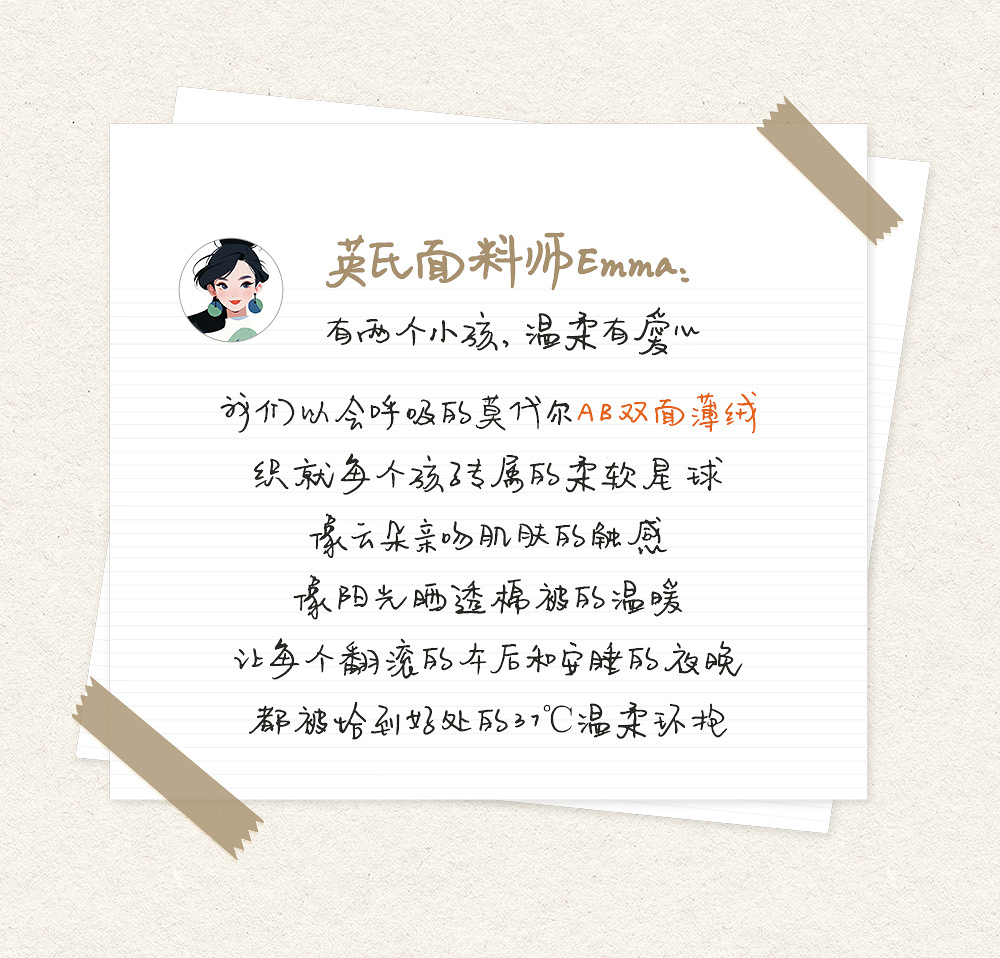 英氏面料师Emma:
有两个小孩,温柔有爱心
我们以会呼吸的莫代尔AB双面薄绒
织就每个孩子专属的柔软星球
像云朵亲吻肌肤的触感
像阳光晒透棉被的温暖
让每个翻滚的午后和安睡的夜晚
都被恰到好处的37℃温柔环抱